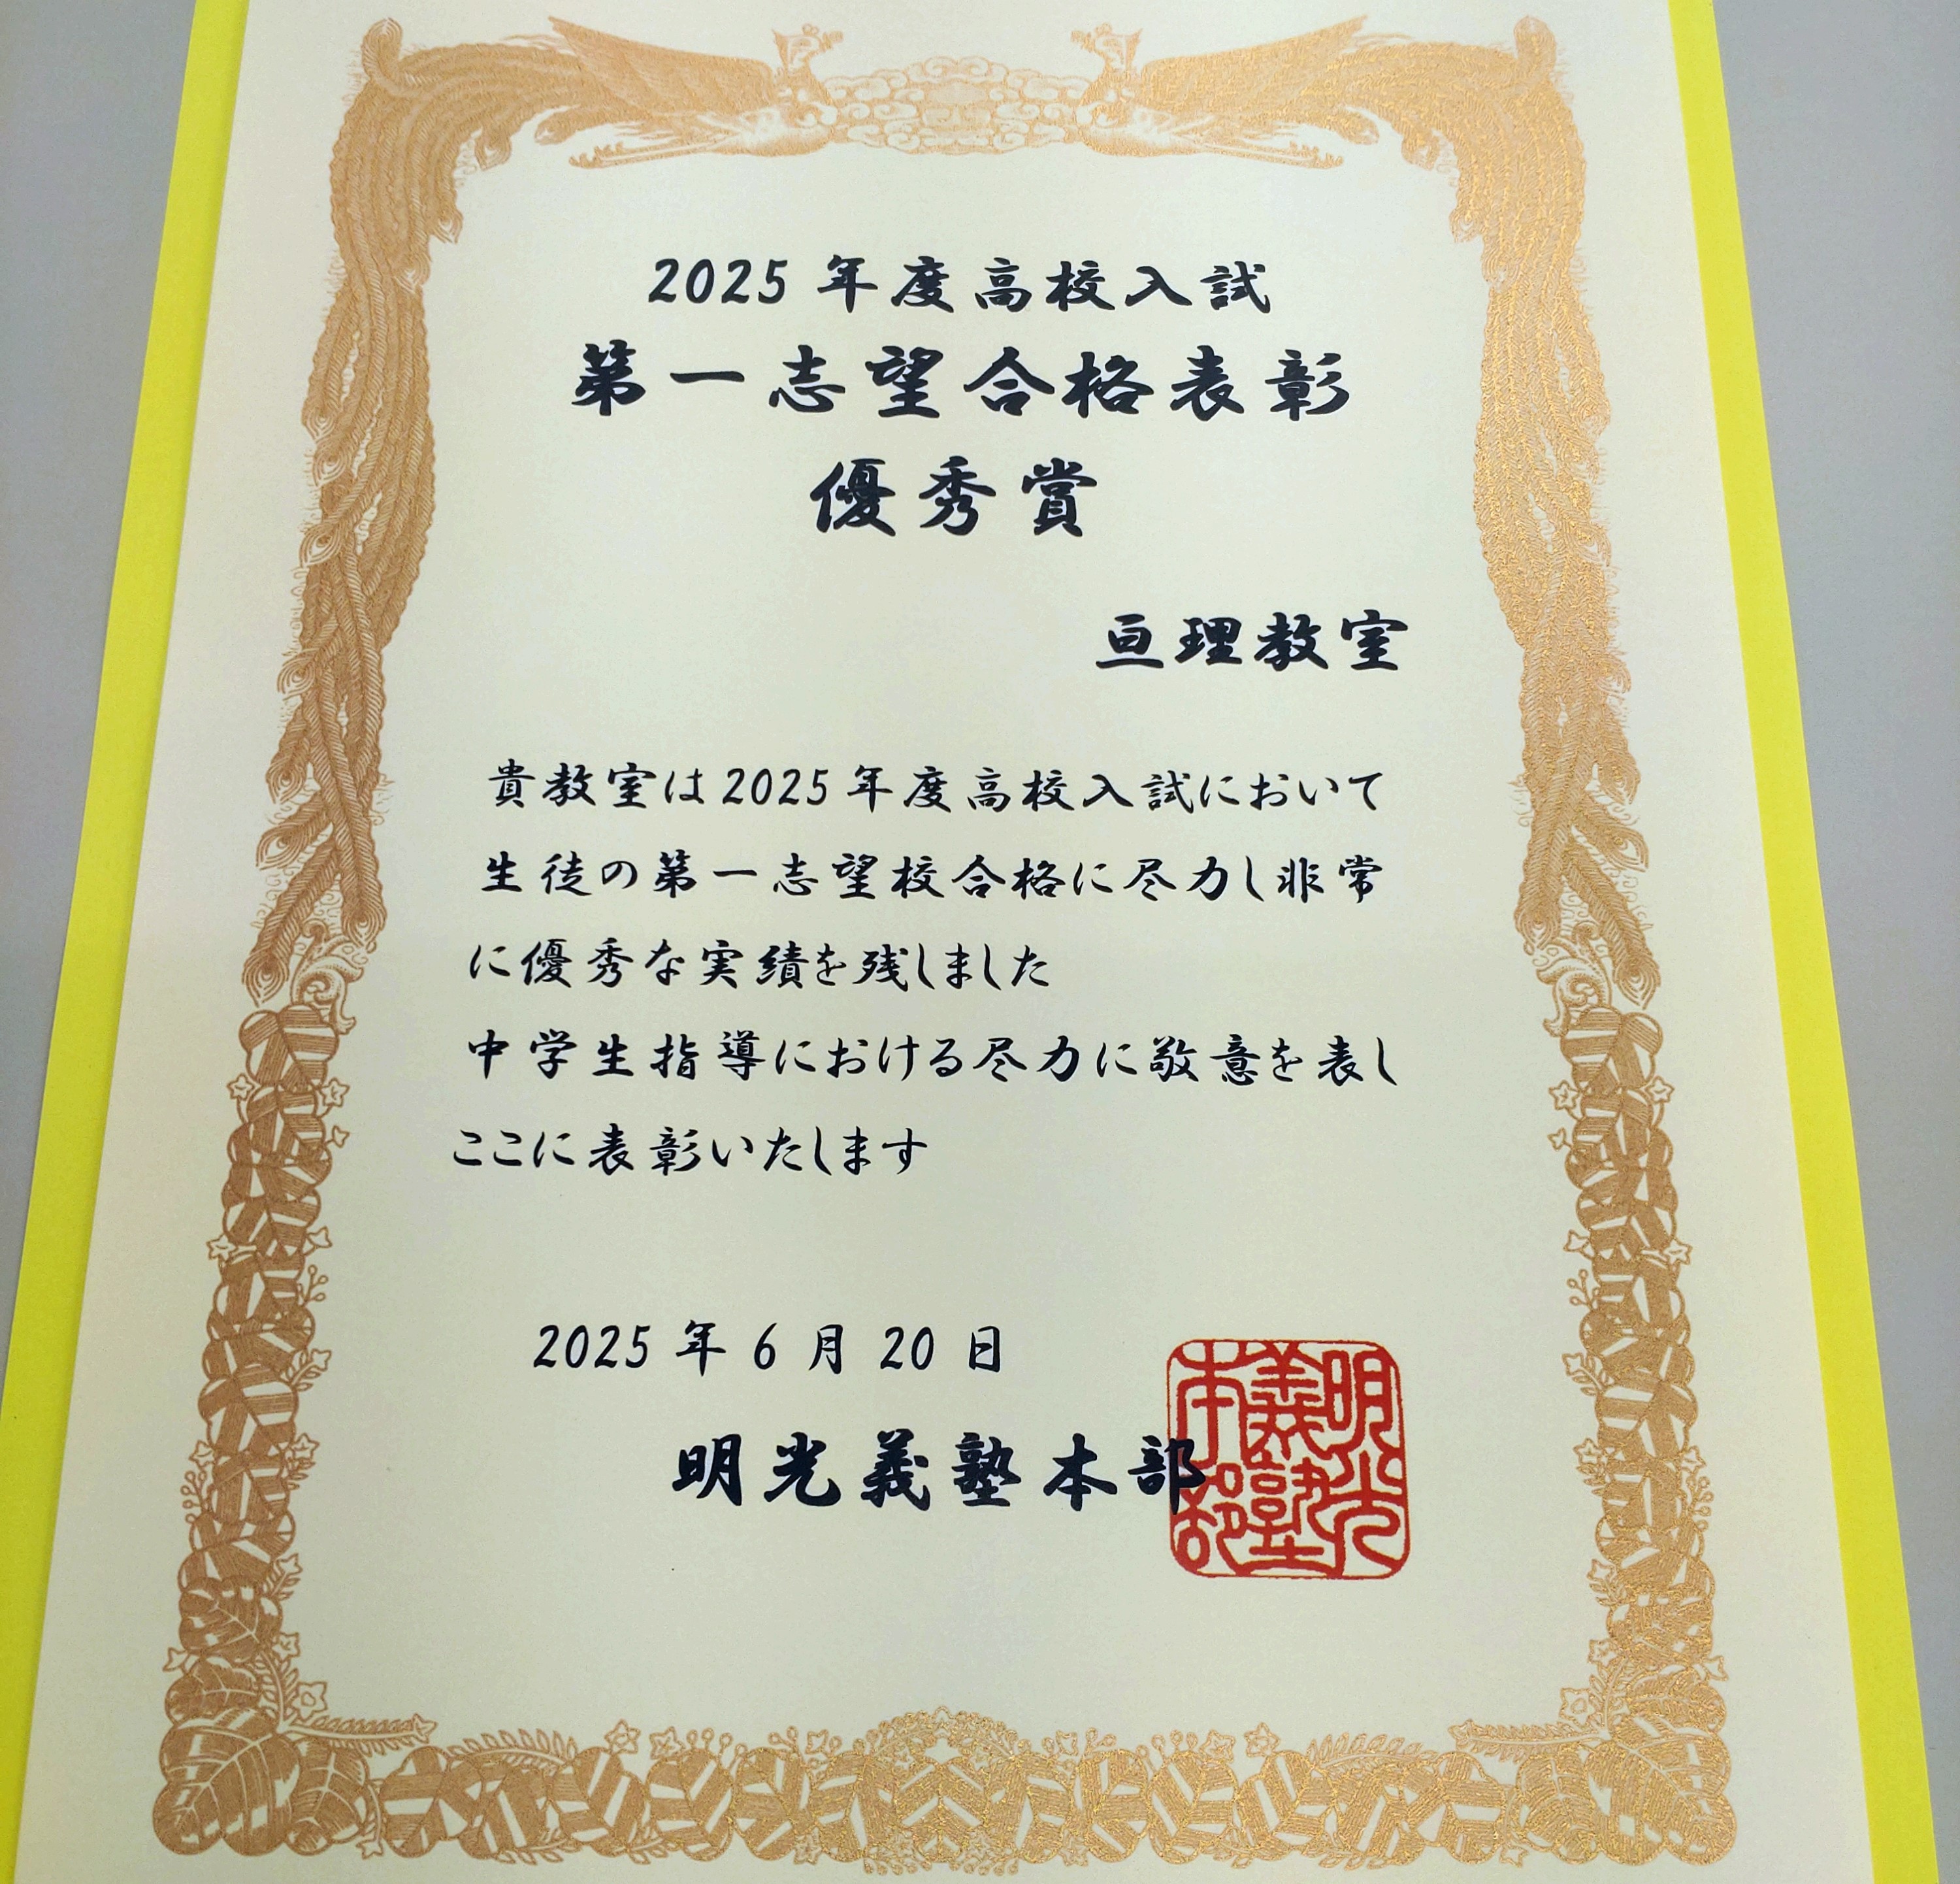 2025年度高校入試
第一志望合格表彰
優秀賞
亘理教室
貴教室は2025年度高校入試において
生徒の第一志望校合格に尽力し非常
に優秀な実績を残しました
中学生指導における尽力に敬意を表し
ここに表彰いたします
2025年6月20日
明光義塾本部
明光
義塾
本部